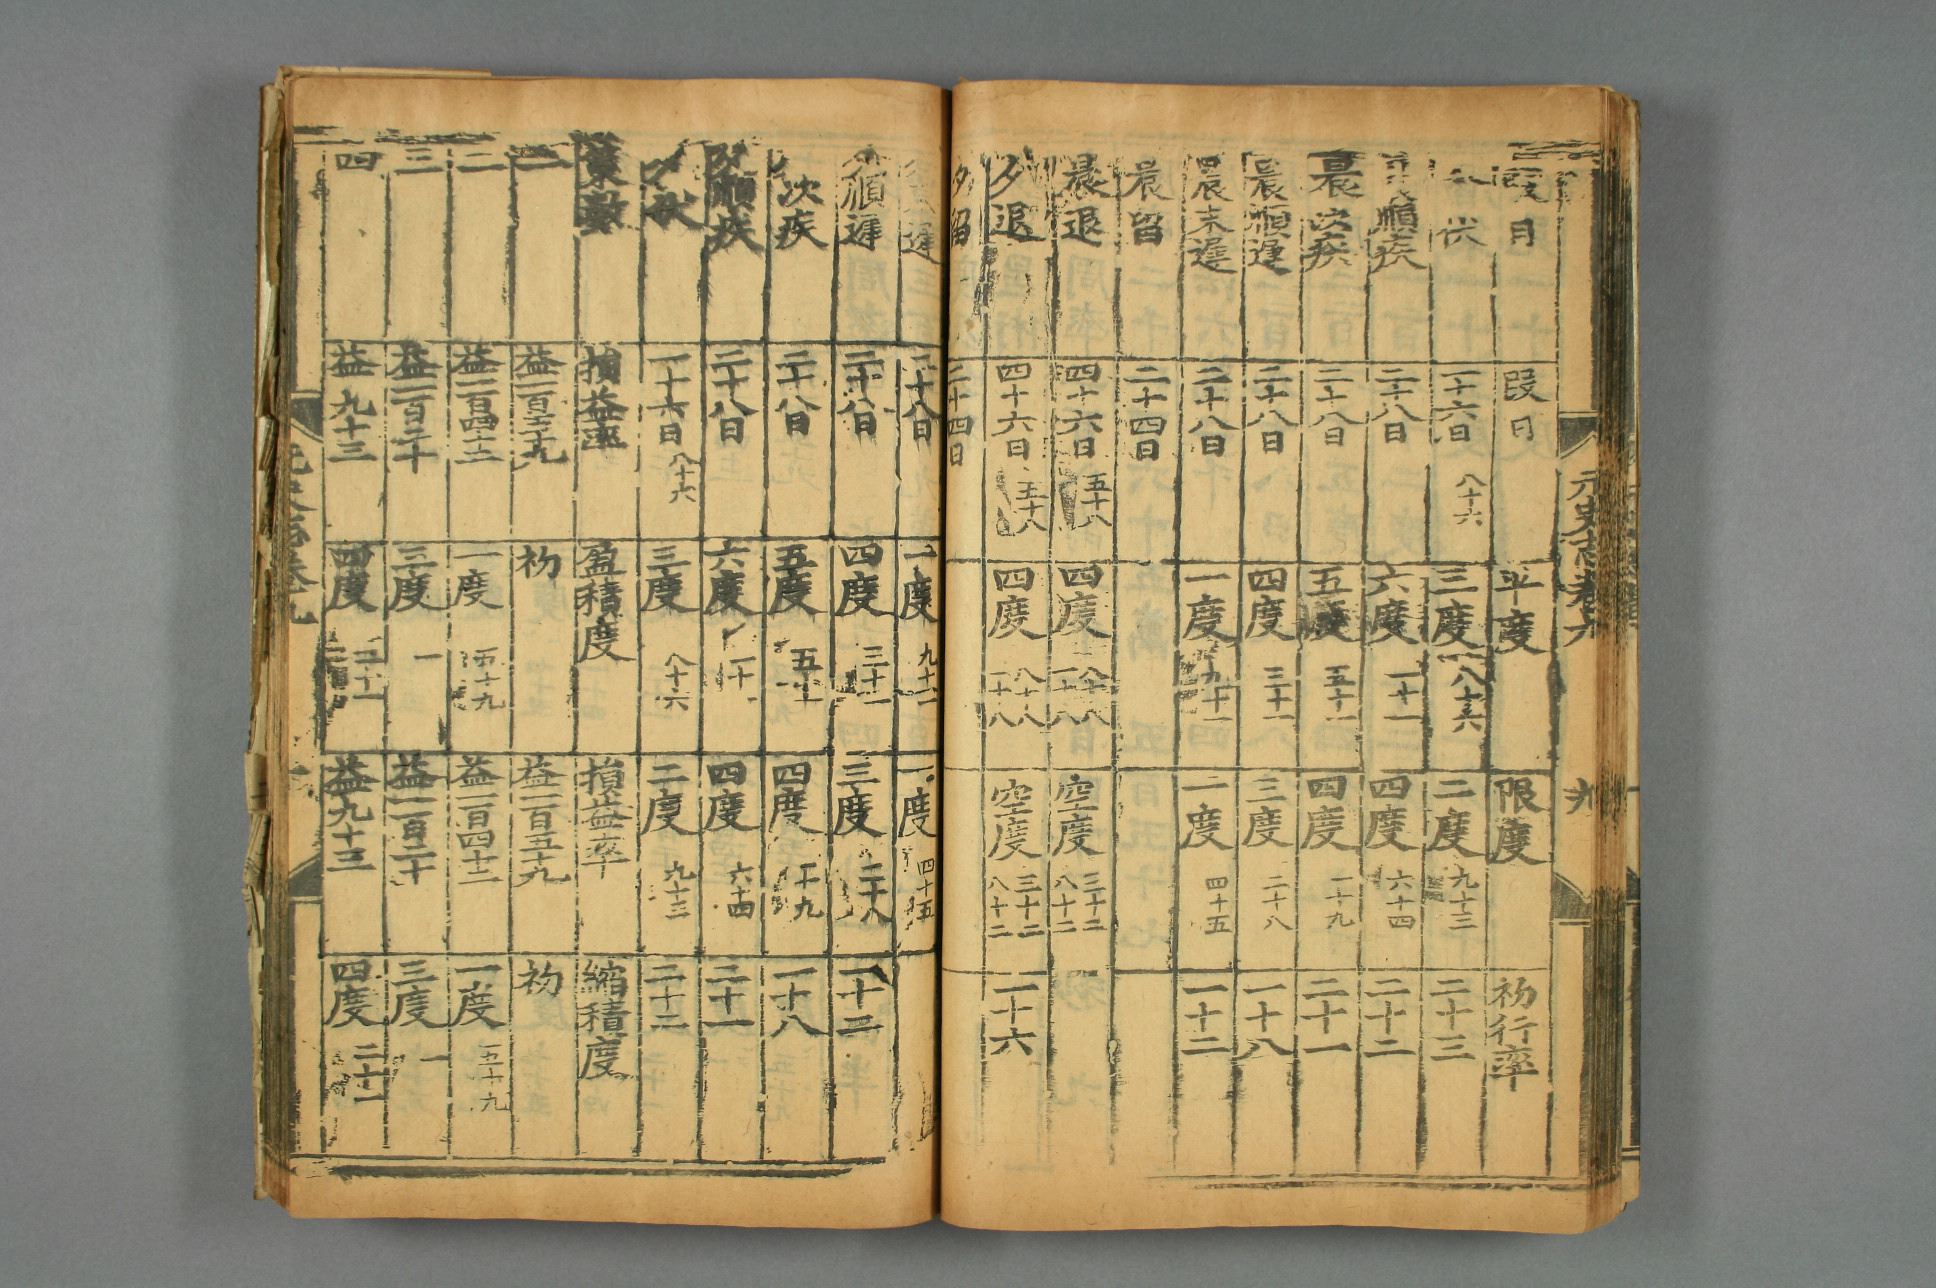 元史志卷六 九
段目 段日 平度 限度 初行率
伏 一十六日 八十六 三度 八十六 二度 九十三 二十三
順疾 二十八日 六度 一十一 四度 六十四 二十二
晨次疾 二十八日 五度 五十一 四度 一十九 二十一
晨順遲 二十八日 四度 三十一 三度 二十八 一十八
晨末遲 二十八日 一度 九十一 一度 四十五 一十二
晨留 二十四日
晨退 四十六日 五十八 四度 八十八 一十八 空度 三十二 八十二
夕退 四十六日 五十八 四度 八十八 一十八 空度 三十二 八十二 一十六
夕留 二十四日
遲 二十八日 一度 九十一 一度 四十五
夕順遲 二十八日 四度 三十一 三度 二十八 一十二
次疾 二十八日 五度 五十一 四度 一十九 一十八
夕順疾 二十八日 六度 四度 六十四 二十一
夕伏 一十六日 八十六 三度 八十六 二度 九十三 二十二
策數 損益率 盈積度 損益率 縮積度
一 益一百五十九 初 益一百五十九 初
二 益一百四十二 一度 五十九 益一百四十二 一度 五十九
三 益一百二十 三度 一 益一百二十 三度 一
四 益九十三 四度 二十一 益九十三 四度 二十一